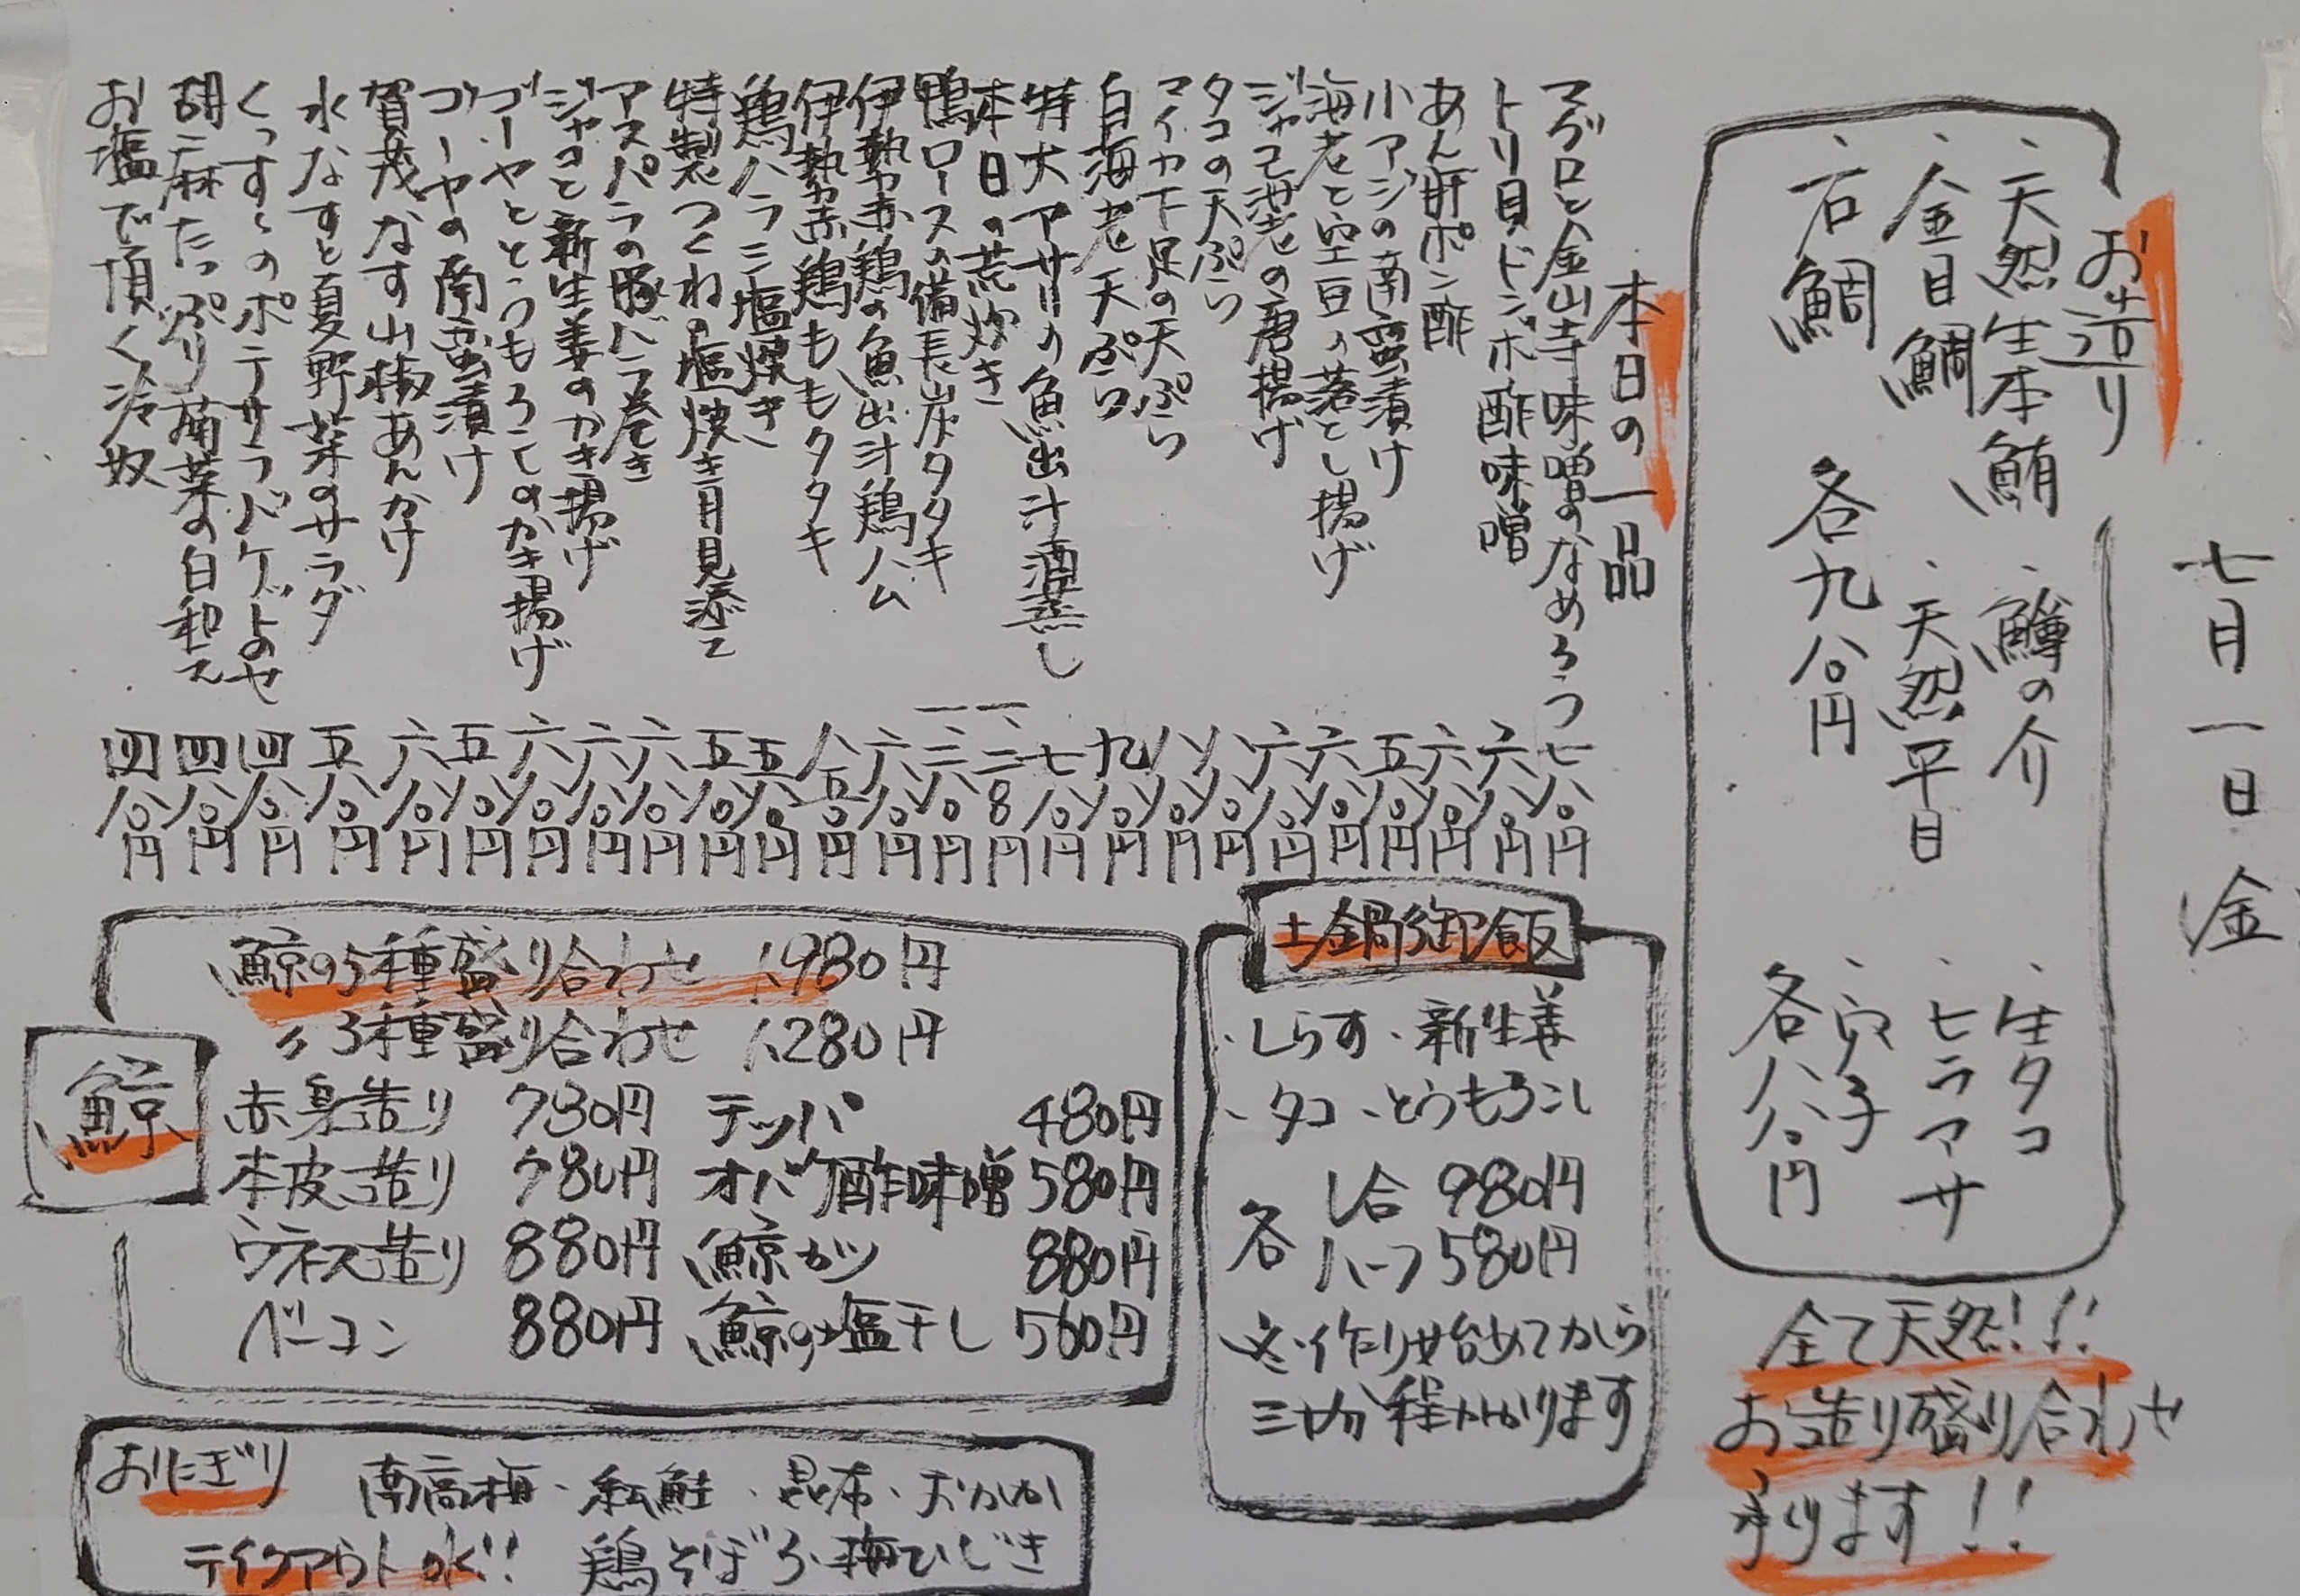 七月一日 金
お造り
・天然生本鮪
・鱒の介
・生タコ
・金目鯛
・天然平目
・ヒラマサ
・石鯛
・穴子
各九八〇円
各八八〇円
全て天然!!!
お造り盛り合わせ
承ります!!
本日の一品
マグロと金山寺味噌のなめろう 七八〇円
トリ貝ドンポ酢味噌 六八〇円
あん肝ポン酢 六八〇円
小アジの南蛮漬け 五八〇円
海老と空豆の落とし揚げ 六八〇円
ジャコ海老の唐揚げ 六八〇円
タコの天ぷら 八八〇円
マイカ下足の天ぷら 八八〇円
白海老天ぷら 九八〇円
特大アサリの魚出汁酒蒸し 七八〇円
本日の荒炊き 一、二80円
鴨ロースの備長炭タタキ 一、二八〇円
伊勢赤鶏の魚出汁鶏ハム 六八〇円
伊勢赤鶏ももタタキ 八八〇円
鶏ハラミ塩焼き 五八〇円
特製つくねの塩焼き月見添て 五八〇円
アスパラの豚バラ巻き 六八〇円
ジャコと新生姜のかき揚げ 六八〇円
ゴーヤととうもろこしのかき揚げ 六八〇円
ゴーヤの南蛮漬け 五八〇円
賀茂なす山椒あんかけ 六八〇円
水なすと夏野菜のサラダ 五八〇円
くっすぃのポテサラバゲットのせ 四八〇円
胡麻たっぷり菊菜の白和え 四八〇円
お塩で頂く冷奴 四八〇円
土鍋御飯
・しらす・新生姜
・タコ・とうもろこし
各 1合 980円
ハーフ 580円
※作り始めてから
三十分程かかります
鯨
鯨の5種盛り合わせ 1,980円
〃3種盛り合わせ 1,280円
赤身造り 780円 テッパ 480円
本皮造り 780円 オバケ酢味噌 580円
ウネス造り 880円 鯨カツ 880円
ベーコン 880円 鯨の塩干し 560円
おにぎり 南高梅・紅鮭・昆布・おかか
テイクアウトOK!! 鶏そぼろ・梅ひじき